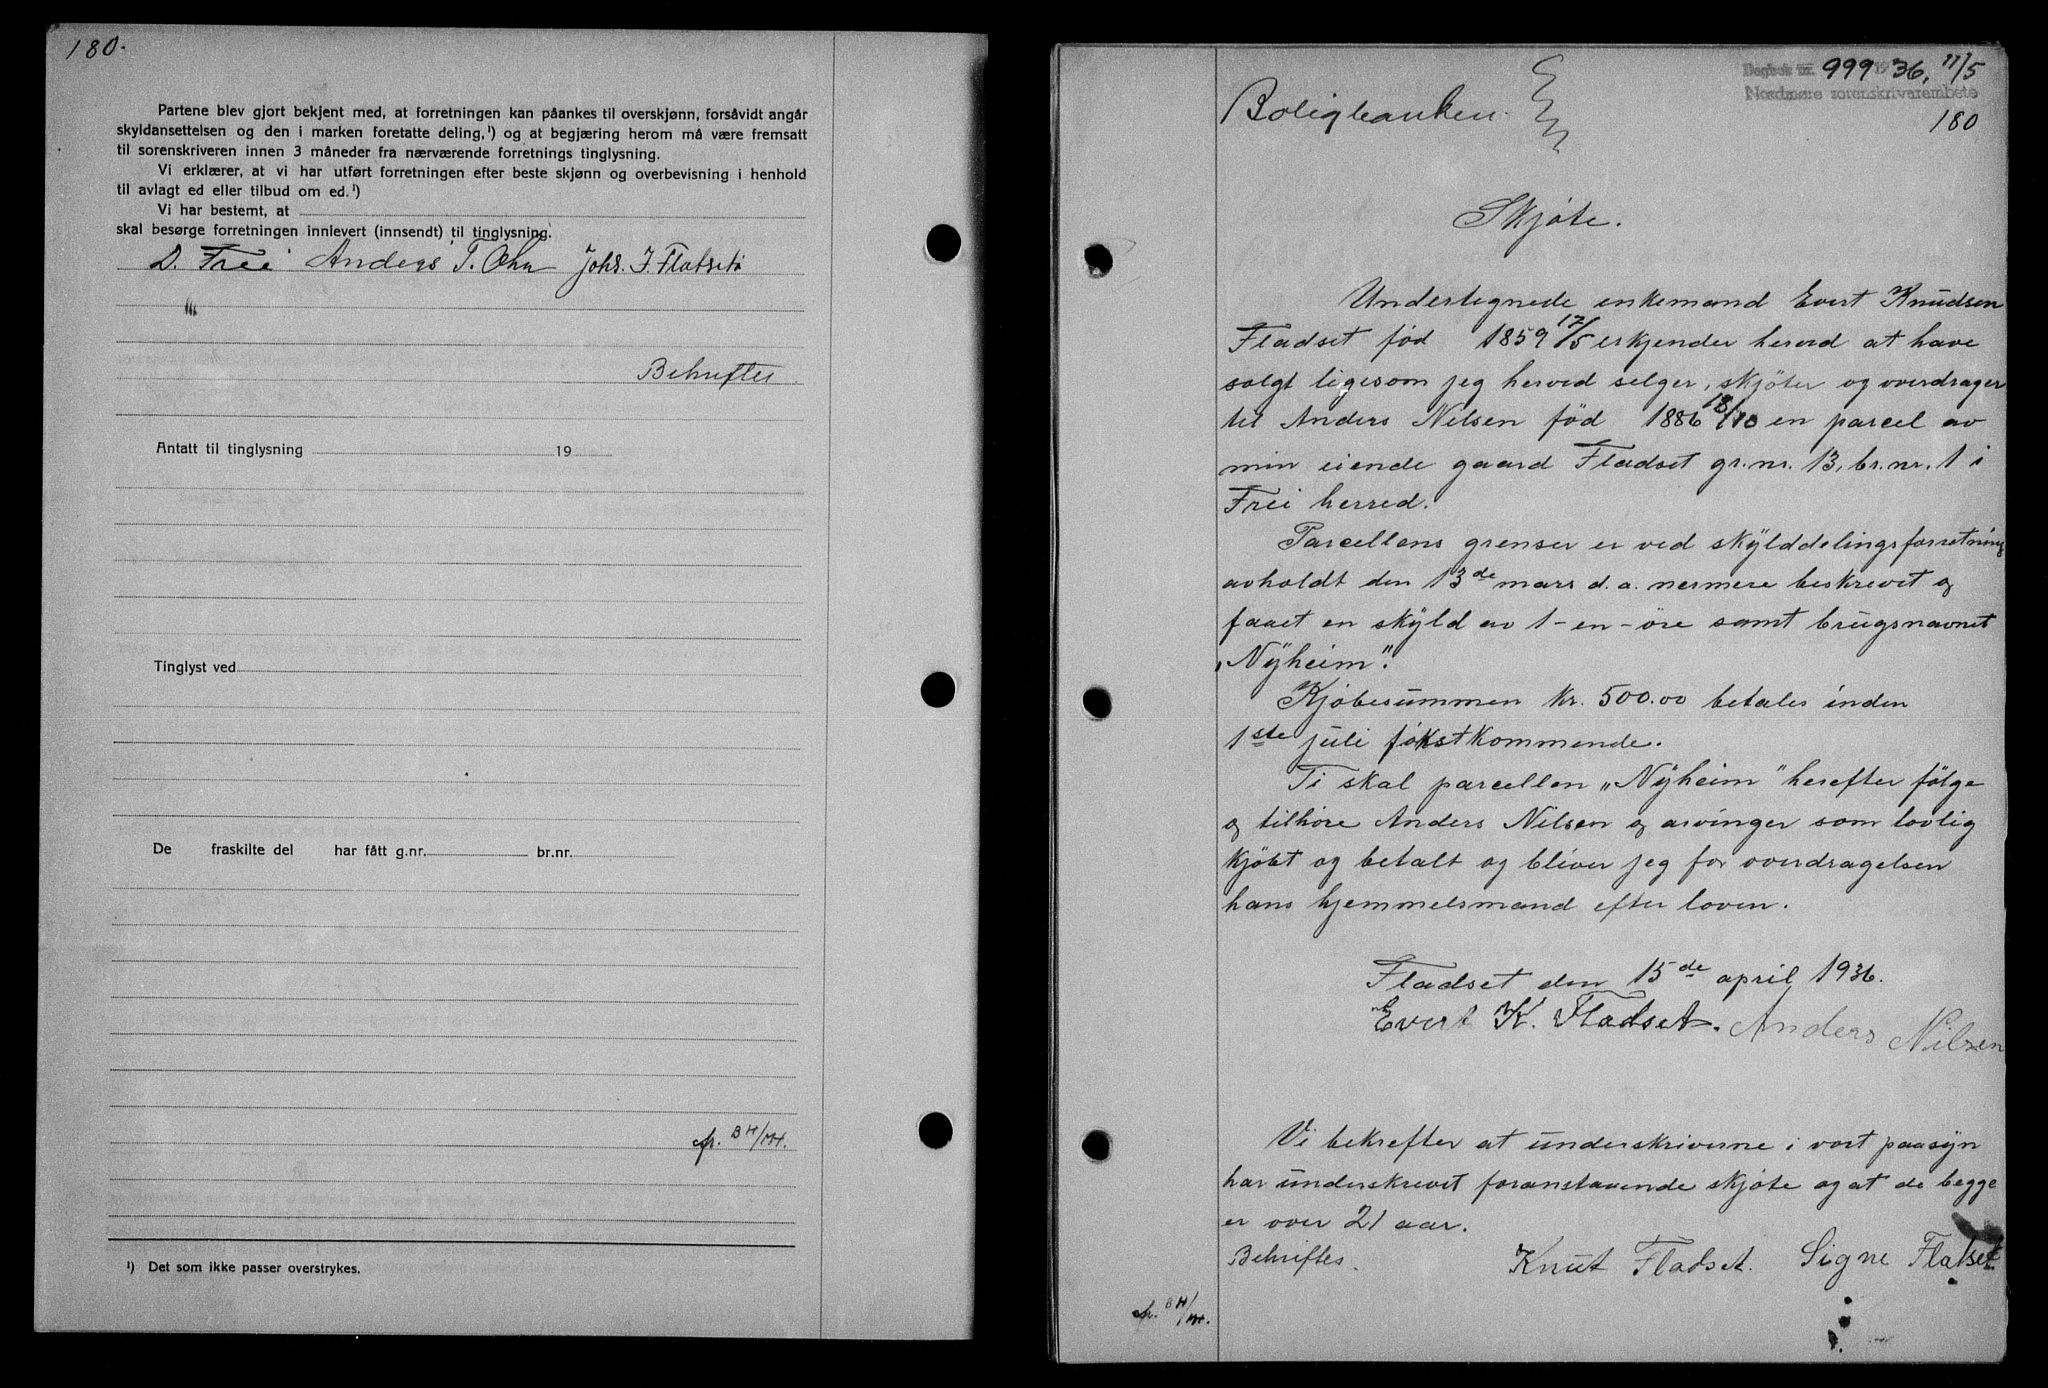 180.
Partene blev gjort bekjent med, at forretningen kan påankes til overskjønn, forsåvidt angår
skyldansettelsen og den i marken foretatte deling,¹) og at begjæring herom må være fremsatt
til sorenskriveren innen 3 måneder fra nærværende forretnings tinglysning.
Vi erklærer, at vi har utført forretningen efter beste skjønn og overbevisning i henhold
til avlagt ed eller tilbud om ed.¹)
Vi har bestemt, at
skal besørge forretningen innlevert (innsendt) til tinglysning.
D. Frei Anders T. Johs. J. Flatsetø
Bekreftes
Antatt til tinglysning 19
Tinglyst ved
De fraskilte del har fått g.nr. br.nr.
¹) Det som ikke passer overstrykes.
Dagbok nr. 999 1936, 11/5
Nordmøre sorenskrivarembete
Boligbanken.
180
Skjøte.
Undertegnede enkemand Evert Knudsen
Fladset fød 1859 12/5 erkjender herved at have
solgt ligesom jeg herved selger, skjöter og overdrager
til Anders Nilsen fød 1886 18/10 en parcel av
min eiende gaard Fladset gr.nr. 13, br.nr. 1 i
Frei herred.
Parcellens grenser er ved skÿlddelingsforretning
avholdt den 13de mars d.a. nermere beskrevet og
faaet en skÿld av 1-en-öre samt brugsnavnet
"Nÿheim".
Kjöbesummen kr. 500.00 betales inden
1ste juli førstkommende.
Ti skal parcellen "Nÿheim" herefter fölge
og tilhøre Anders Nilsen og arvinger som lovlig
kjöbt og betalt og bliver jeg for overdragelsen
hans hjemmelsmand efter loven.
Fladset den 15de april 1936.
Evert K. Fladset. Anders Nilsen
Vi bekrefter at underskriverne i vort paasÿn
har underskrevet foranstaaende skjøte og at de begge
er over 21 aar.
Bekreftes. Knut Fladset. Signe Flatset